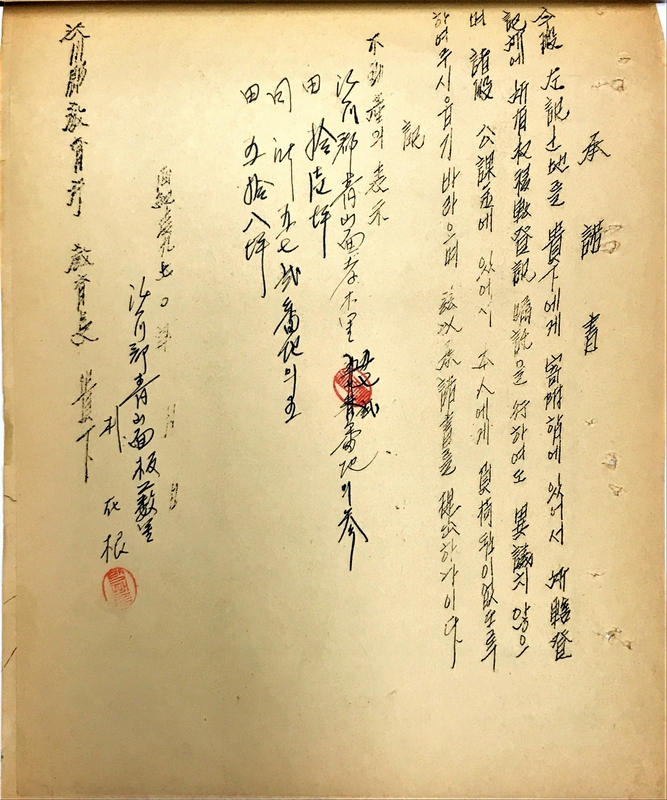 承諾書
今般 左記土地를 貴下에게 寄附함에 있어서 所轄登
記所에 所有權移轉登記 囑託을 行하여도 異議치 않으
며 諸般 公課金에 있어서 本人에게 負荷됨이 없도록
하여주시옵기 바라오며 玆以承諾書를 提出하나이다
記
不動産의 表示
沃川郡青山面孝木里 五七貳番地의參
田 拾 坪
同所 五七貳番地의五
田 五拾八坪
西紀 一九 年 月 日
沃川郡青山面板藪里
朴 根
沃川郡教育 教育長 貴下